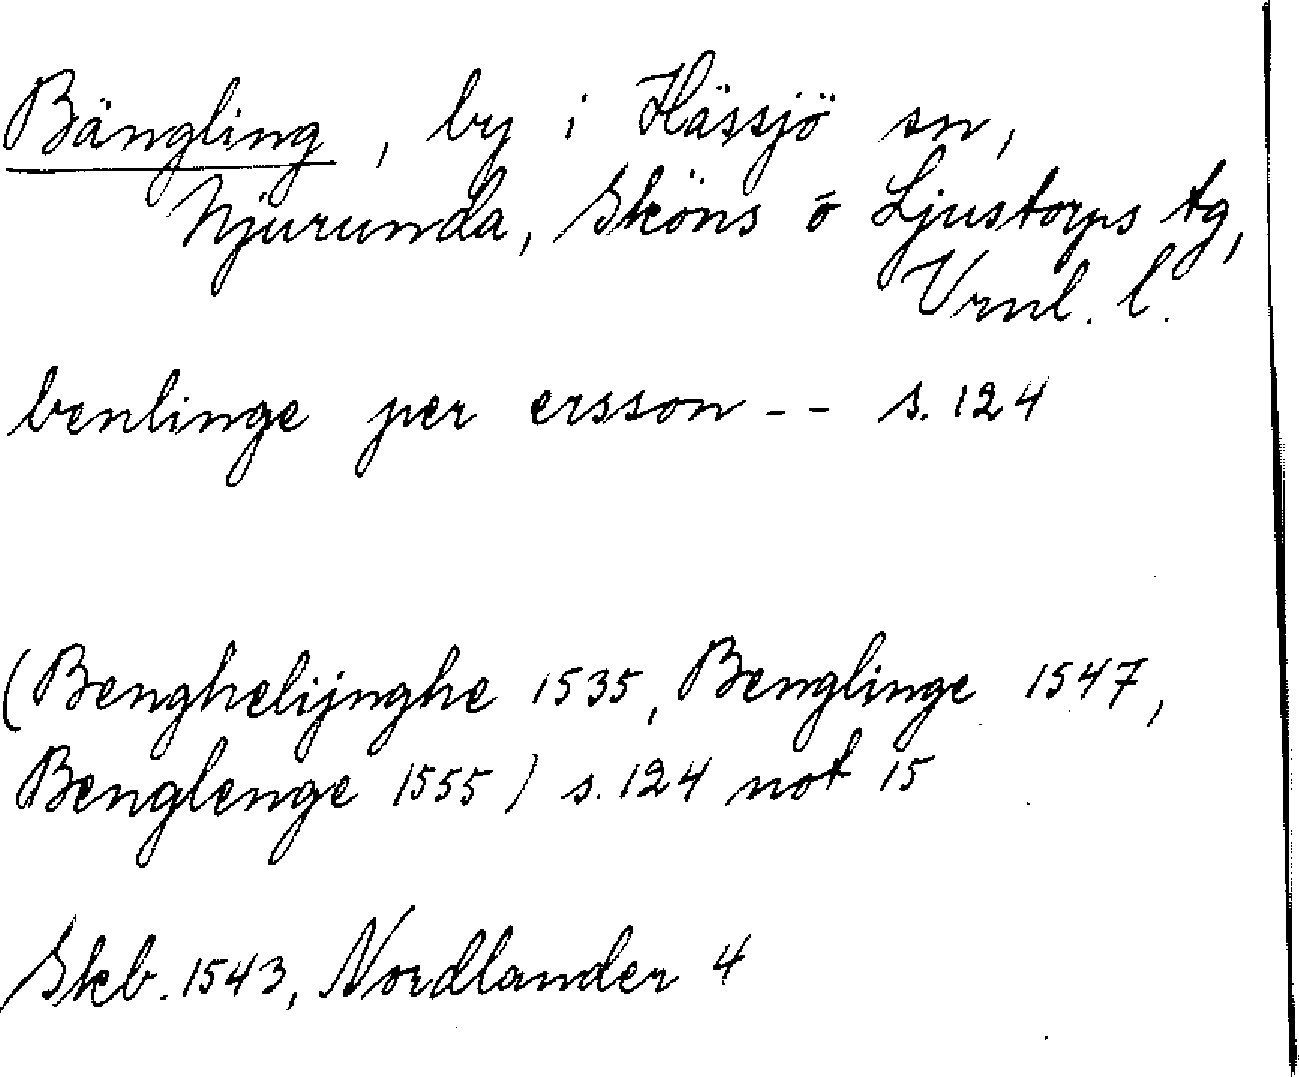 Bängling, by i Hässjö sn,
Njurunda, Sköns o Ljustorps tg,
Vrnl. l.
benlinge per ersson -- s. 124
(Benghelijnghe 1535, Benglinge 1547,
Benglenge 1555) s. 124 not 15
Skb. 1543, Nordlander 4